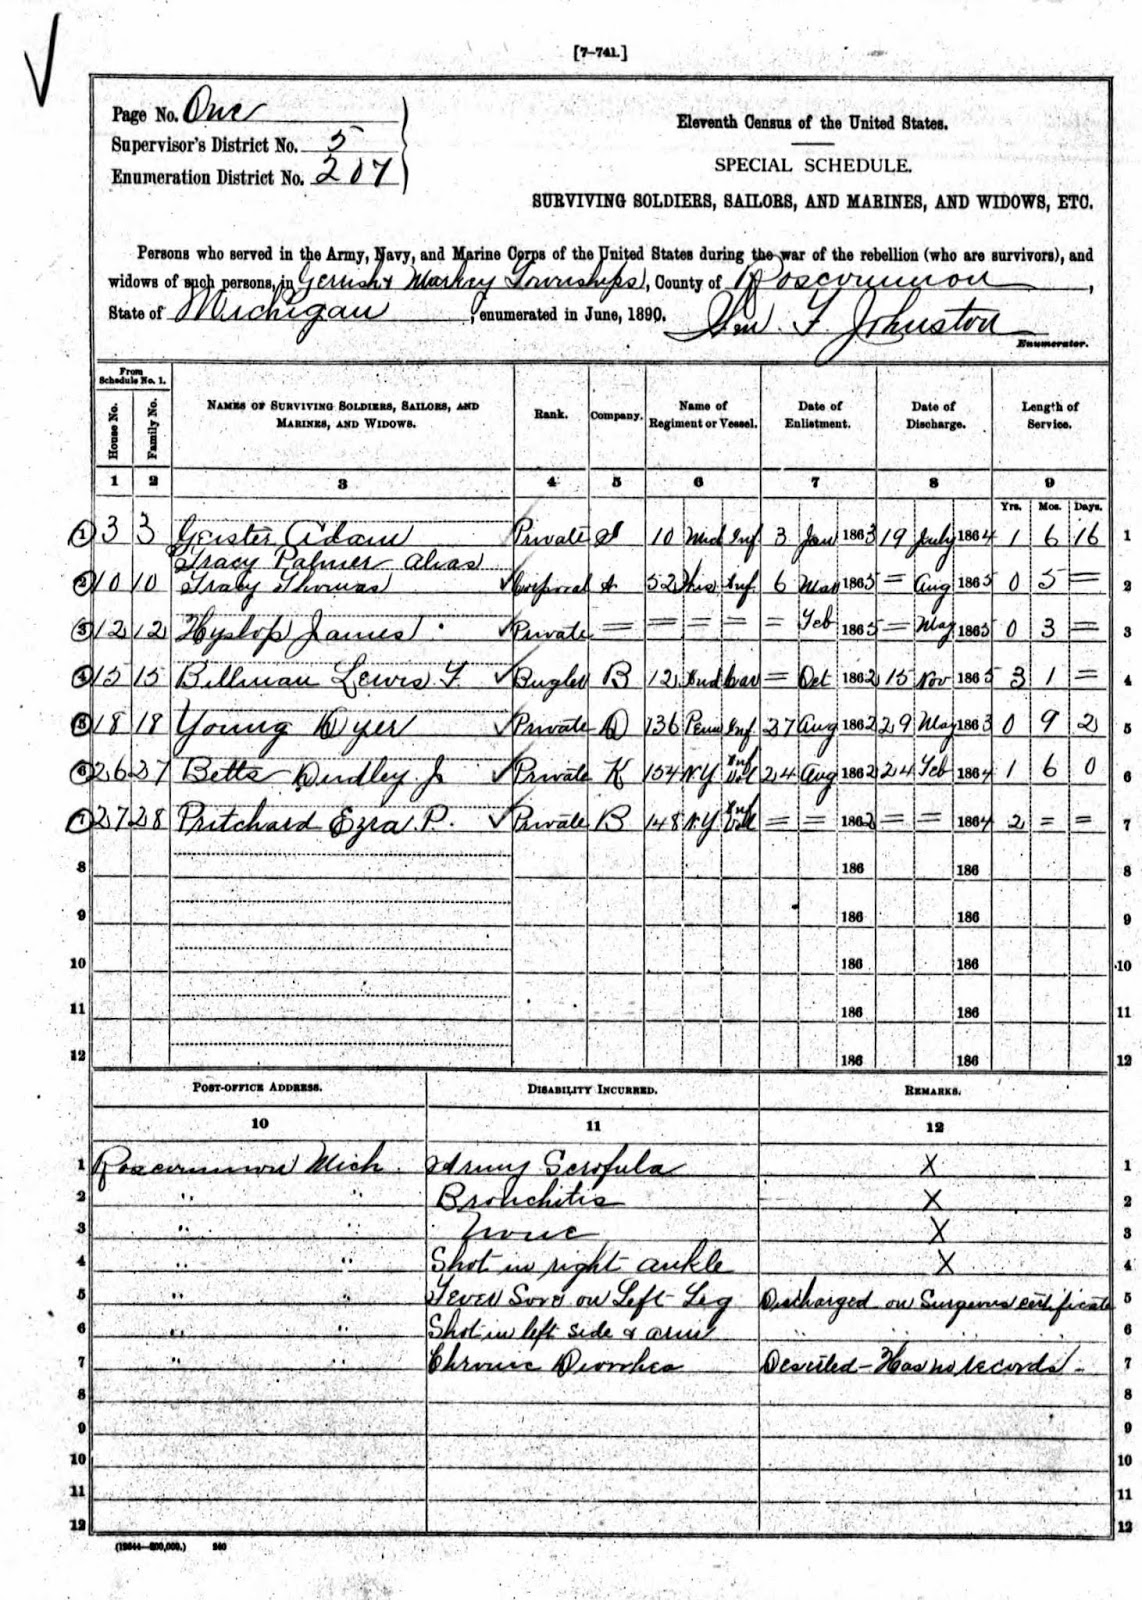 [7-741.]
Page No. One
Supervisor's District No. 5
Enumeration District No. 207
Eleventh Census of the United States.
SPECIAL SCHEDULE.
SURVIVING SOLDIERS, SAILORS, AND MARINES, AND WIDOWS, ETC.
Persons who served in the Army, Navy, and Marine Corps of the United States during the war of the rebellion (who are survivors), and
widows of such persons, in Gerrish & Markey Townships, County of Roscommon,
State of Michigan, enumerated in June, 1890. Geo. F. Johnston
Enumerator.
From Schedule No. 1. House No. Family No. NAMES OF SURVIVING SOLDIERS, SAILORS, AND MARINES, AND WIDOWS. Rank. Company. Name of Regiment or Vessel. Date of Enlistment. Date of Discharge. Length of Service.
1 2 3 4 5 6 7 8 9
Yrs. Mos. Days.
1 3 3 Geister Adam Private 10 Mich Inf 3 Jan 1863 19 July 1864 1 6 16 1
Tracy Palmer alias
2 10 10 Tracy Thomas Corporal A 52 Wis Inf 6 Mar 1865 = Aug 1865 0 5 = 2
3 12 12 Hyslop James Private = = = = = Feb 1865 = May 1865 0 3 = 3
4 15 15 Billman Lewis F. Bugler B 12 Ind Cav = Oct 1862 15 Nov 1865 3 1 = 4
5 18 18 Young Dyer Private D 136 Penn Inf 27 Aug 1862 29 May 1863 0 9 2 5
6 26 27 Betts Dudley Jr Private K 154 NY Inf Vol 24 Aug 1862 24 Feb 1864 1 6 0 6
7 27 28 Pritchard Ezra P. Private B 148 N.Y Inf Vol = = 1862 = = 1864 2 = = 7
8 186 186 8
9 186 186 9
10 186 186 10
11 186 186 11
12 186 186 12
POST-OFFICE ADDRESS. DISABILITY INCURRED. REMARKS.
10 11 12
1 Roscommon Mich. Army Scrofula X 1
2 " " Bronchitis X 2
3 " " None X 3
4 " " Shot in right ankle X 4
5 " " Fever Sore on Left Leg Discharged on Surgeons certificate 5
6 " " Shot in left side & arm " " " " 6
7 " " Chronic Diorrhea Deserted - Has no records - 7
8 8
9 9
10 10
11 11
12 12
(12644—200,000.) 240